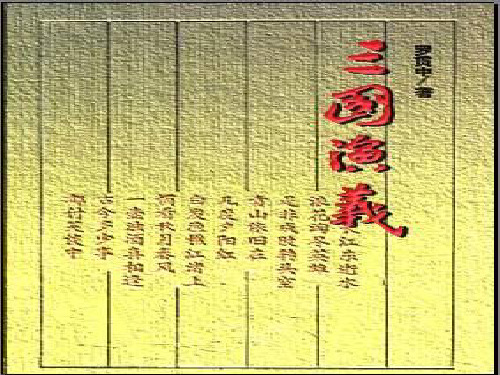 罗贯中/著
三國演義
江东逝水
浪花淘尽英雄
是非成败转头空
青山依旧在
几度夕阳红
白发渔樵江渚上
惯看秋月春风
一壶浊酒喜相逢
古今多少事
都付笑谈中